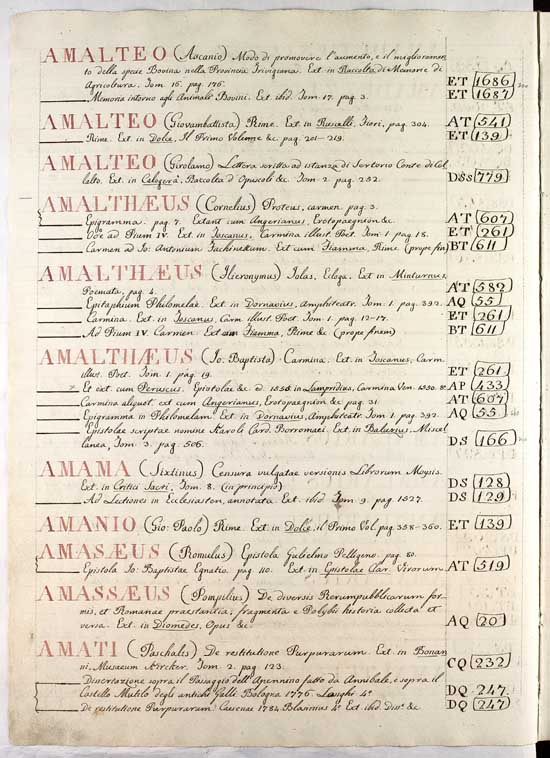 AMALTEO (Ascanio) Modo di promovere l'aumento, e il miglioramen-
to della specie Bovina nella Provincia Trivigiana. Ext. in Raccolta di Memorie di
Agricoltura. Tom. 16. pag. 176. ET 1686
Memoria intorno agli Animali Bovini. Ext. ibid. Tom. 17. pag. 3. ET 1687
AMALTEO (Giovambattista) Rime. Ext. in Ruscelli, Fiori, pag. 304. AT 541
Rime. Ext. in Dolce, Il Primo Volume &c. pag. 201-219. ET 139
AMALTEO (Girolamo) Lettera scritta ad istanza di Sertorio Conte di Col
lalto. Ext. in Calogerà, Raccolta d'Opuscoli &c. Tom. 2. pag. 232. DSS 779
AMALTHÆUS (Cornelius) Proteus, carmen pag. 3.
Epigramma. pag. 7. Extant cum Angerianus, Erotopaegnion &c. AT 607
Ode ad Pium IV. Ext. in Toscanus, Carmina illust. Poet. Tom. 1. pag. 18. ET 261
Carmen ad Io: Antonium Fachinettum. Ext. cum Fiamma, Rime (prope fin) BT 611
AMALTHÆUS (Hieronymus) Iolas, Ecloga. Ext. in Minturnus,
Poemata, pag. 4. AT 582
Epitaphium Philomelae. Ext. in Dornavius, Amphiteatr. Tom. 1. pag. 392. AQ 55
Carmina. Ext. in Toscanus, Carm. illust. Poet. Tom. 1. pag. 12-17. ET 261
Ad Pium IV. Carmen. Ext. Fiamma, Rime &c (prope finem) BT 611
AMALTHÆUS (Io: Baptista) Carmina. Ext. in Toscanus, Carm.
illust. Poet. Tom. 1. pag. 19. ET 261
Et ext. cum Peruscus. Epistolae &c. in Lampridius, Carmina Ven. 1550. 8º AP 433
Carmina aliquot. ext. cum Angerianus, Erotopaegnion &c. pag. 31. AT 607
Epigramma in Philomelam. Ext. in Dornavius, Amphiteatr. Tom. 1. pag. 392. AQ 55
Epistolae scriptae nomine Karoli Card. Borromaei. Ext. in Baluzius, Miscel
lanea, Tom. 3. pag. 506. DS 166
AMAMA (Sixtinus) Censura vulgatae versionis Librorum Moysis.
Ext. in Critici Sacri, Tom. 8. (in principio) DS 128
Ad Lectiones in Ecclesiasten, annotata. Ext. ibid. Tom. 9. pag. 1527. DS 129
AMANIO (Gio: Paolo) Rime. Ext. in Dolce, il Primo Vol. pag. 358-360. ET 139
AMASÆUS (Romulus) Epistola Gulielmo Pellegno. pag. 80.
Epistola Io: Baptistae Egnatio. pag. 110. Ext. in Epistolae Clar. Virorum. AT 519
AMASSÆUS (Pompilius) De diversis Rerumpublicarum for-
mis, et Romanae praestantia, fragmenta e Polybii historia collecta et
versa. Ext. in Diomedes, Opus &c. AQ 20
AMATI (Paschalis) De restitutione Purpurarum. Ext. in Bonan
ni, Musaeum Kircher. Tom. 2. pag. 123. CQ 232
Dissertazione sopra il Passaggio dell'Apennino fatto da Annibale, e sopra il
Castello Mutilo degli antichi Galli. Bologna 1776. Langhi 4º DQ 247
De restitutione Purpurarum: Caesenae 1784. Blasinius 4º Ext. ibid. Diss. &c DQ 247